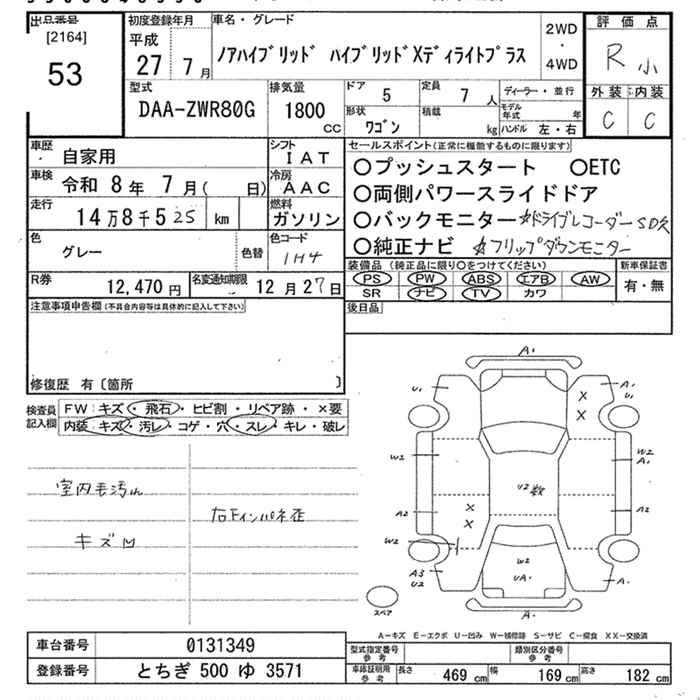 出品番号 初度登録年月 車名・グレード 2WD・4WD 評価点
[2164]
53
平成 27年 7月
ノアハイブリッド ハイブリッドXディライトプラス
R 小
型式 排気量 ドア 5 定員 7人 ディーラー・並行 外装 内装
DAA-ZWR80G 1800 cc 形状 ワゴン 積載 kg モデル年式 年 ハンドル 左・右 C C
車歴 自家用 シフト IAT セールスポイント(正常に機能するものに限ります)
車検 令和 8年 7月( 日) 冷房 AAC
○プッシュスタート ○ETC
○両側パワースライドドア
走行 14万8千525 km 燃料 ガソリン
○バックモニター ☆ドライブレコーダーSD欠
色 グレー 色替 色コード 1H4
○純正ナビ ☆フリップダウンモニター
装備品(純正品に限り○をつけてください) 新車保証書
PS PW ABS エアB AW 有・無
SR ナビ TV カワ
R券 12,470円 名変通知期限 12月27日
注意事項申告欄(不具合内容等は具体的に記入して下さい) 後日品
修復歴 有〔箇所 〕
検査員記入欄 FW:キズ・飛石・ヒビ割・リペア跡・×要
内装・キズ・汚レ・コゲ・穴・スレ・キレ・破レ
室内毛汚れ
キズ凹
A1
U1
A1
U1
X
X
W2
W2
A1
U2 数
X
X
A2
A2
W2
W2
UA1
A3
U2
A1
スペア
A-キズ E-エクボ U-凹み W-補修跡 S-サビ C-腐食 XX-交換済
車台番号 0131349 型式指定番号 参考 類別区分番号 参考
登録番号 とちぎ 500 ゆ 3571 車庫証明用 参考 長さ 469 cm 幅 169 cm 高さ 182 cm